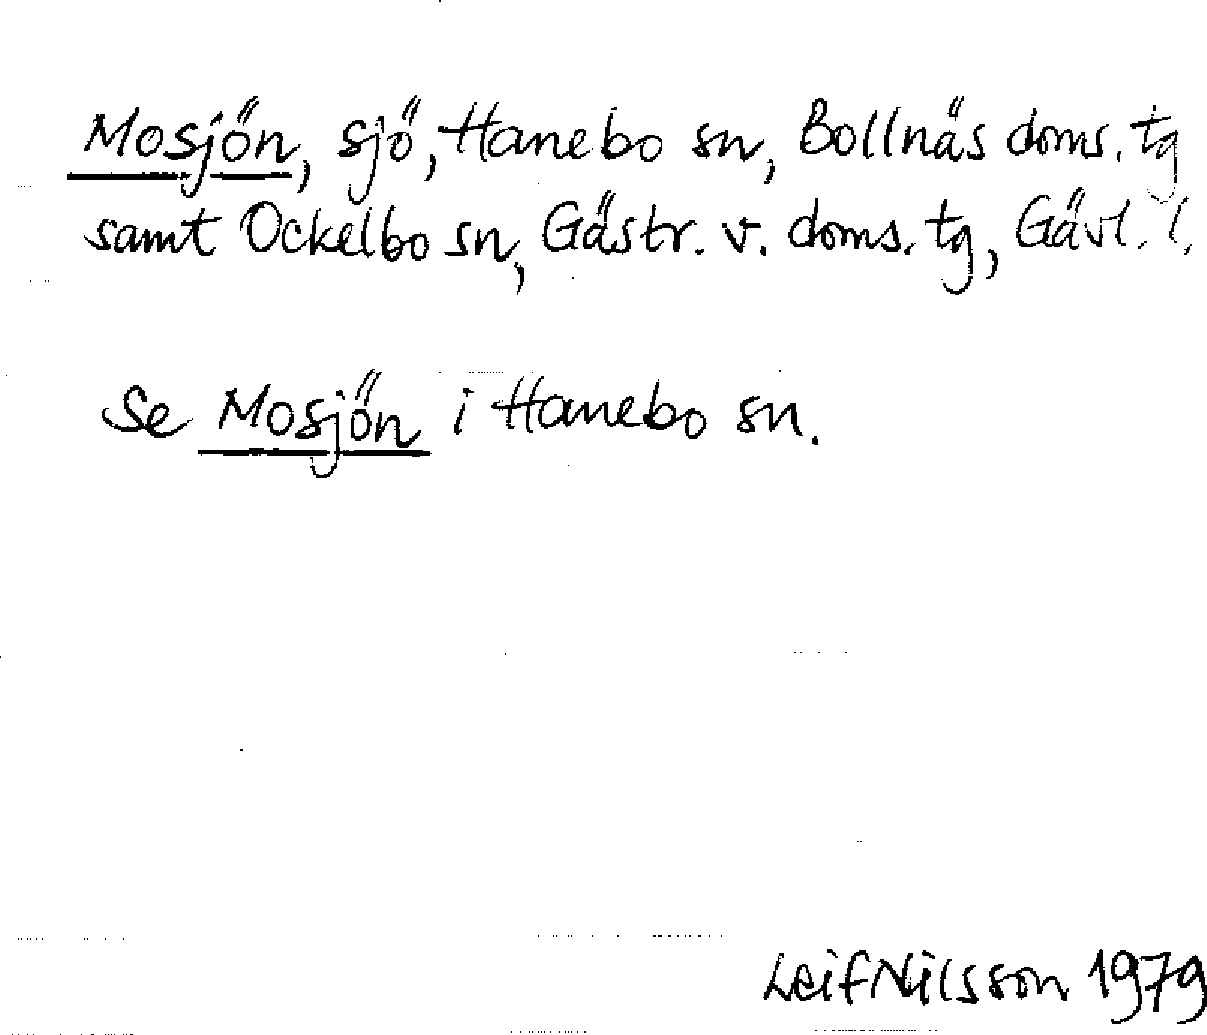 Mosjön, sjö, Hanebo sn, Bollnäs doms. tg
samt Ockelbo sn, Gästr. v. doms. tg, Gävl. l.
Se Mosjön i Hanebo sn.
Leif Nilsson 1979